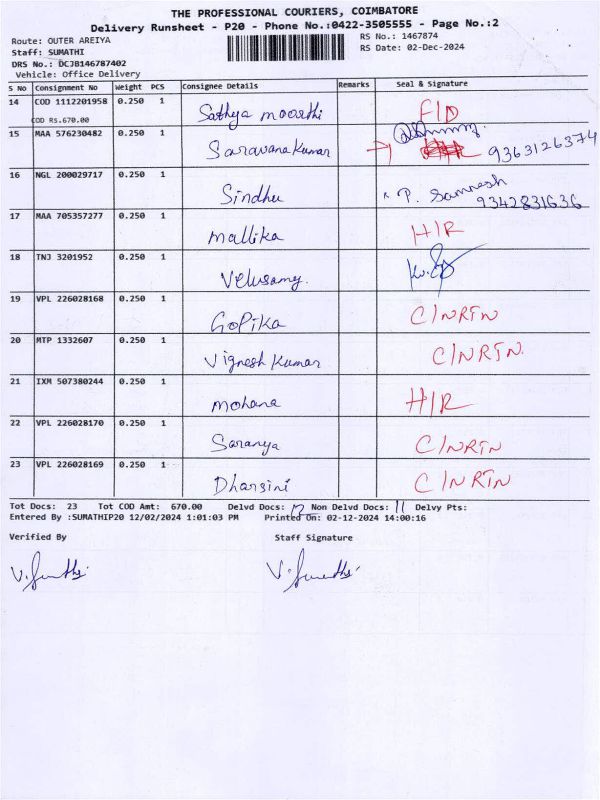 THE PROFESSIONAL COURIERS, COIMBATORE
Delivery Runsheet - P20 - Phone No.:0422-3505555 - Page No.:2
Route: OUTER AREIYA
RS No.: 1467874
Staff: SUMATHI
RS Date: 02-Dec-2024
DRS No.: DCJB146787402
Vehicle: Office Delivery
S No Consignment No Weight PCS Consignee Details Remarks Seal & Signature
14 COD 1112201958 0.250 1 Sathya moorthi F/D
COD Rs.670.00
15 MAA 576230482 0.250 1 Saravana Kumar 9363126374
16 NGL 200029717 0.250 1 Sindhu P. Samresh
9342831636
17 MAA 705357277 0.250 1 Mallika H/R
18 TNJ 3201952 0.250 1 Velusamy.
19 VPL 226028168 0.250 1 Gopika C/NRTN
20 MTP 1332607 0.250 1 Vignesh Kumar C/NRTN.
21 IXM 507380244 0.250 1 Mohana H/R
22 VPL 226028170 0.250 1 Saranya C/NRTN
23 VPL 226028169 0.250 1 Dharsini C/NRTN
Tot Docs: 23 Tot COD Amt: 670.00 Delvd Docs: 12 Non Delvd Docs: 11 Delvy Pts:
Entered By :SUMATHIP20 12/02/2024 1:01:03 PM Printed On: 02-12-2024 14:00:16
Verified By Staff Signature
V. Sumathi V. Sumathi